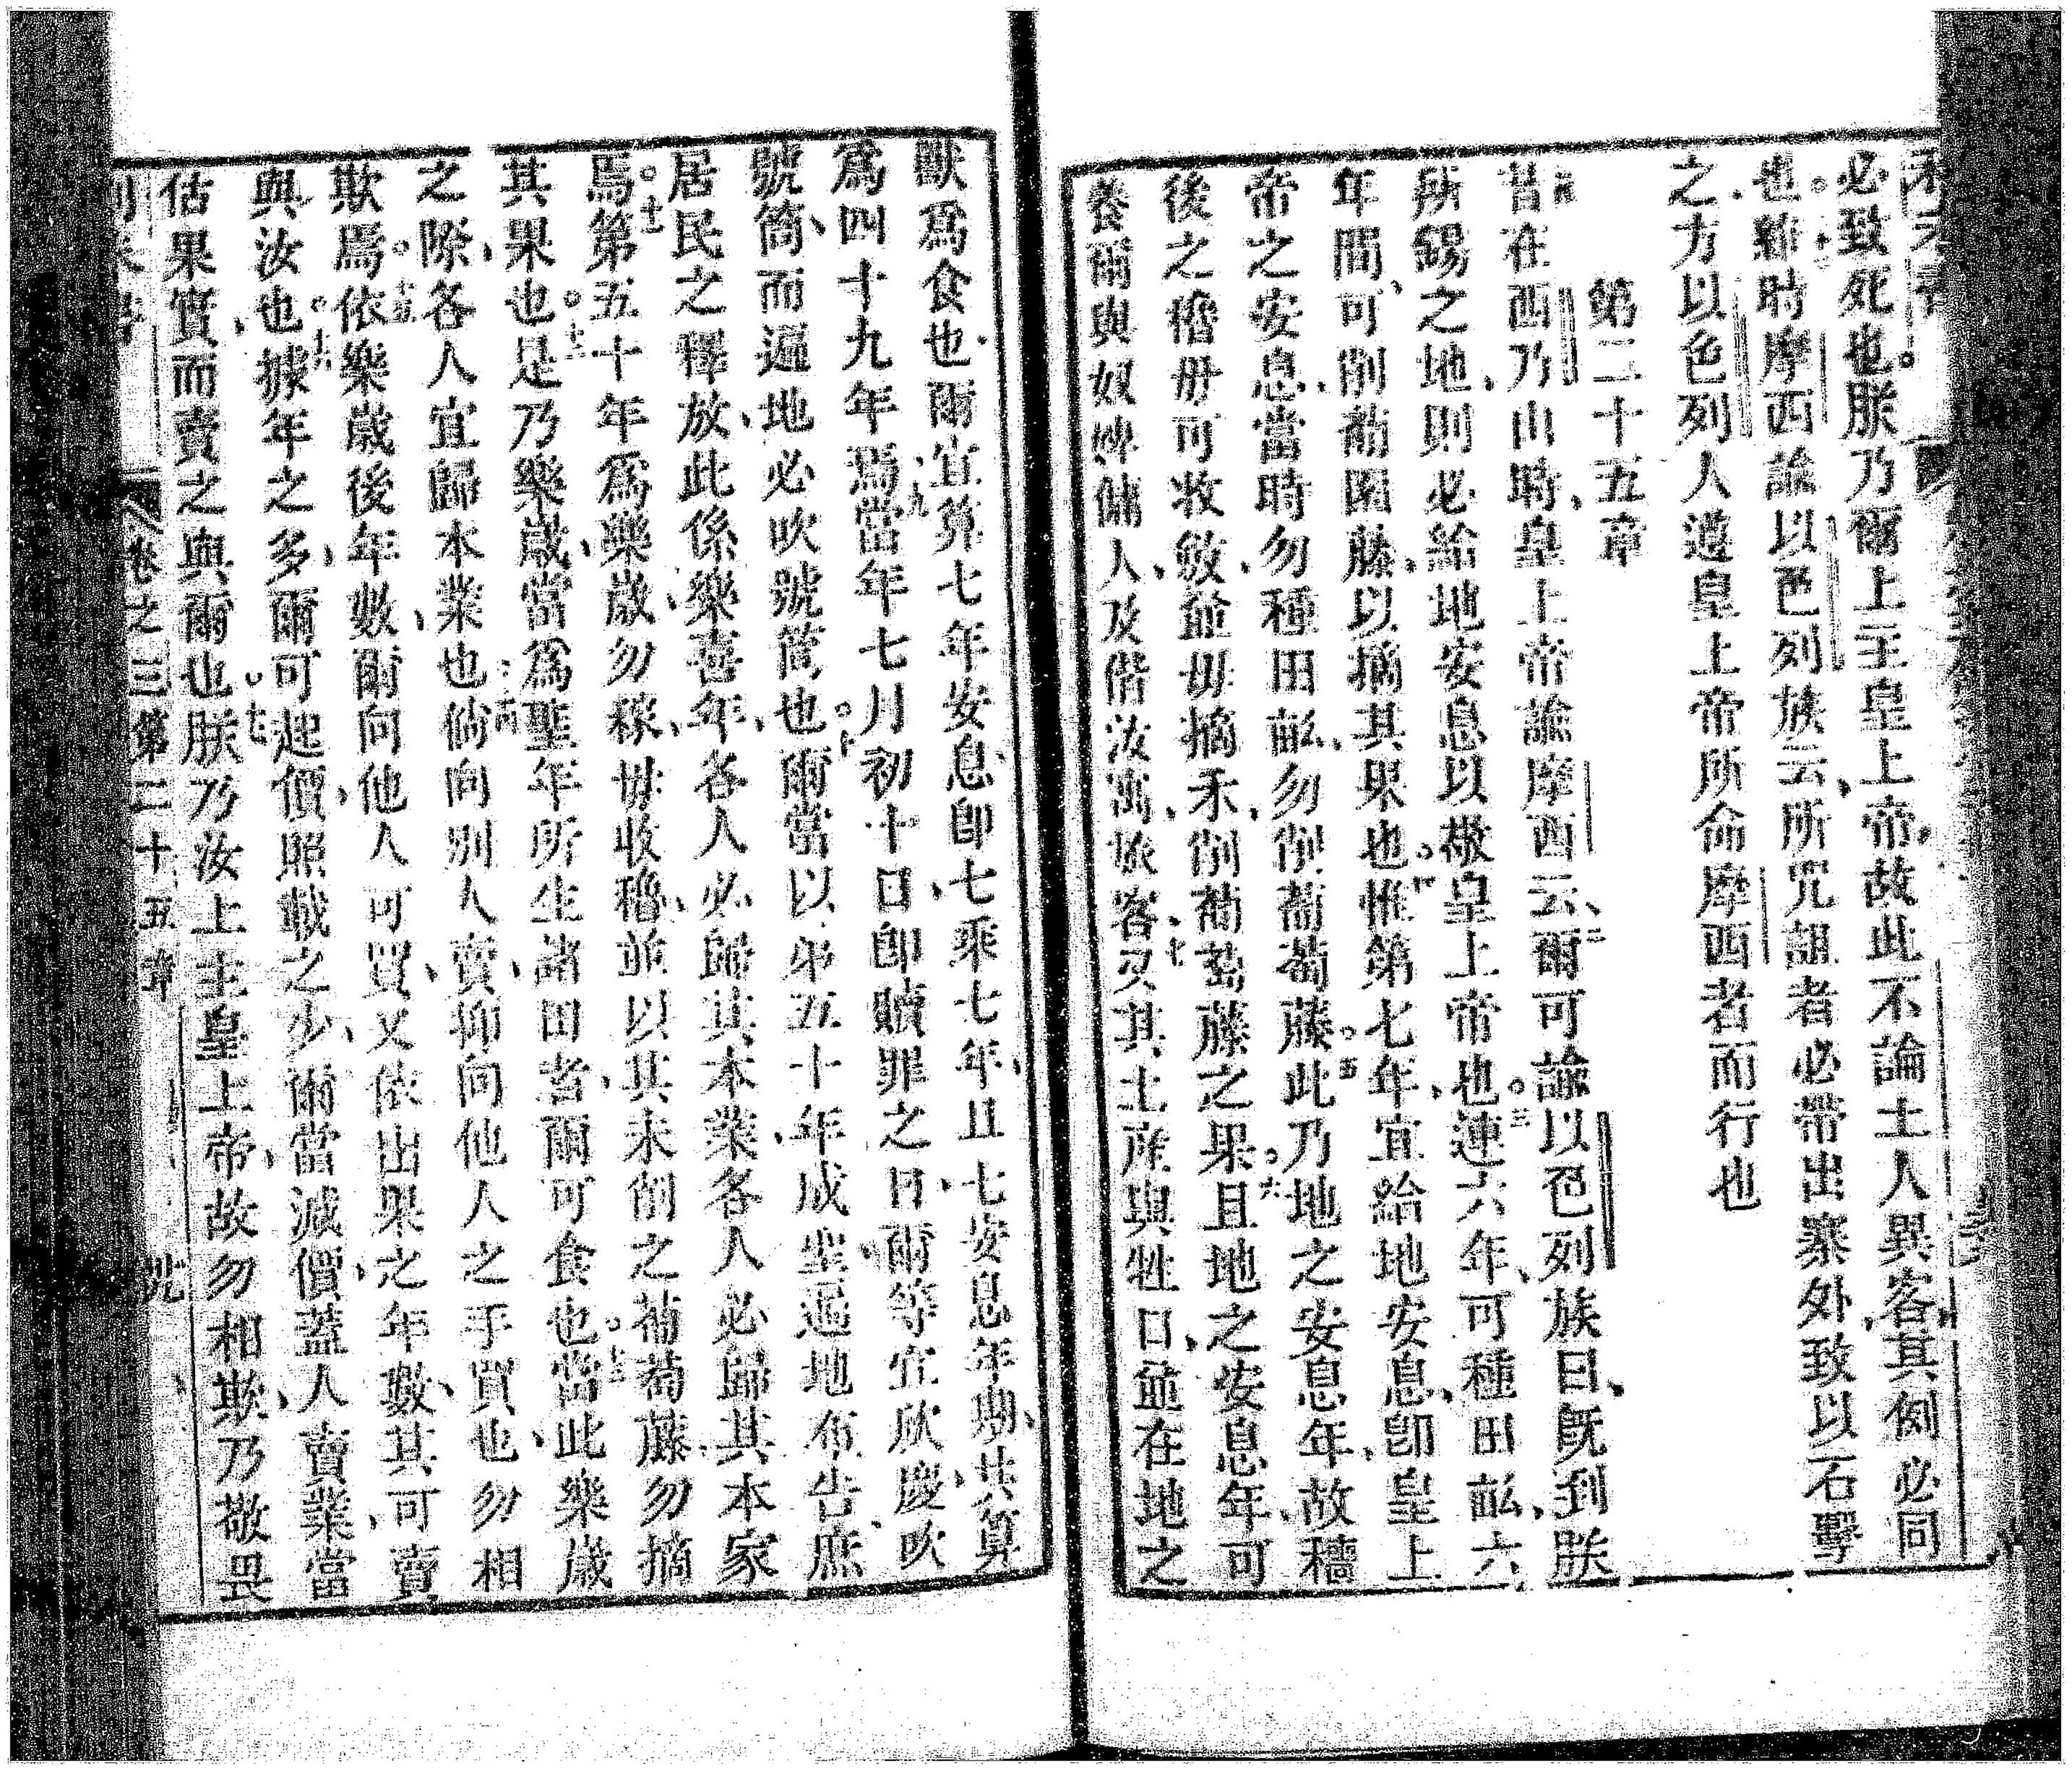 必致死也。朕乃爾上主皇上帝、故此不論土人異客、其例必同
也。雖時摩西諭以色列族云、所咒詛者必帶出寨外、致以石擊
之、方以色列人遵皇上帝所命摩西者而行也
第二十五章
昔在西乃山時、皇上帝諭摩西云、二爾可諭以色列族曰、旣到朕
所錫之地、則必給地安息、以敬皇上帝也。三連六年、可種田畝、六
年間、可削葡園藤、以摘其果也。四惟第七年、宜給地安息、卽皇上
帝之安息、當時勿種田畝、勿削葡萄藤。五此乃地之安息年、故穡
後之穭毋可收斂、並毋摘禾、削葡萄藤之果。六且地之安息年、可
養爾與奴婢、傭人、及偕汝寓旅客、七又其土產與牲口、並在地之
獸爲食也、爾宜算七年安息、卽七乘七年、且七安息年期、共算
爲四十九年焉、九當年七月初十日、卽贖罪之日、爾等宜欣慶吹
號筒、而遍地必吹號筒也。十爾當以第五十年成聖、遍地布告、庶
居民之釋放、此係樂喜年、各人必歸其本業、各人必歸其本家
焉。十一第五十年爲樂歲、勿稼、毋收穭、並以其未削之葡萄藤、勿摘
其果也。十二是乃樂歲、當爲聖年、所生諸田者、爾可食也。十三當此樂歲
之際、各人宜歸本業也、十四倘向別人賣、抑向他人之手買也、勿相
欺焉。十五依樂歲後年數、爾向他人可買、又依出果之年數、其可賣
與汝也。十六據年之多、爾可起價、照載之少、爾當減價、蓋人賣業、當
估果實而賣之與爾也。十七朕乃汝上主皇上帝、故勿相欺、乃敬畏
卷之三 第二十五章